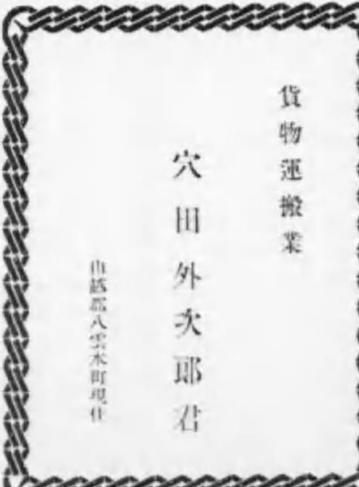 貨物運搬業
穴田外次郎君
山越郡八雲本町現住